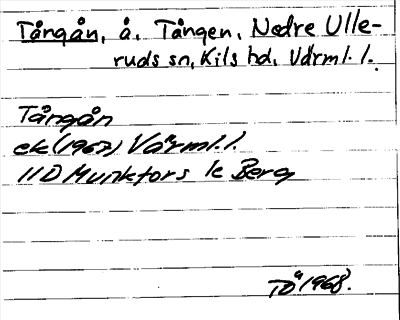 Tångån, å. Tången, Nedre Ulle-
ruds sn, Kils hd, Värml. l.
Tångån
ek (1967) Värml. l.
11D Munkfors 1c Berg
TÅ 1968.